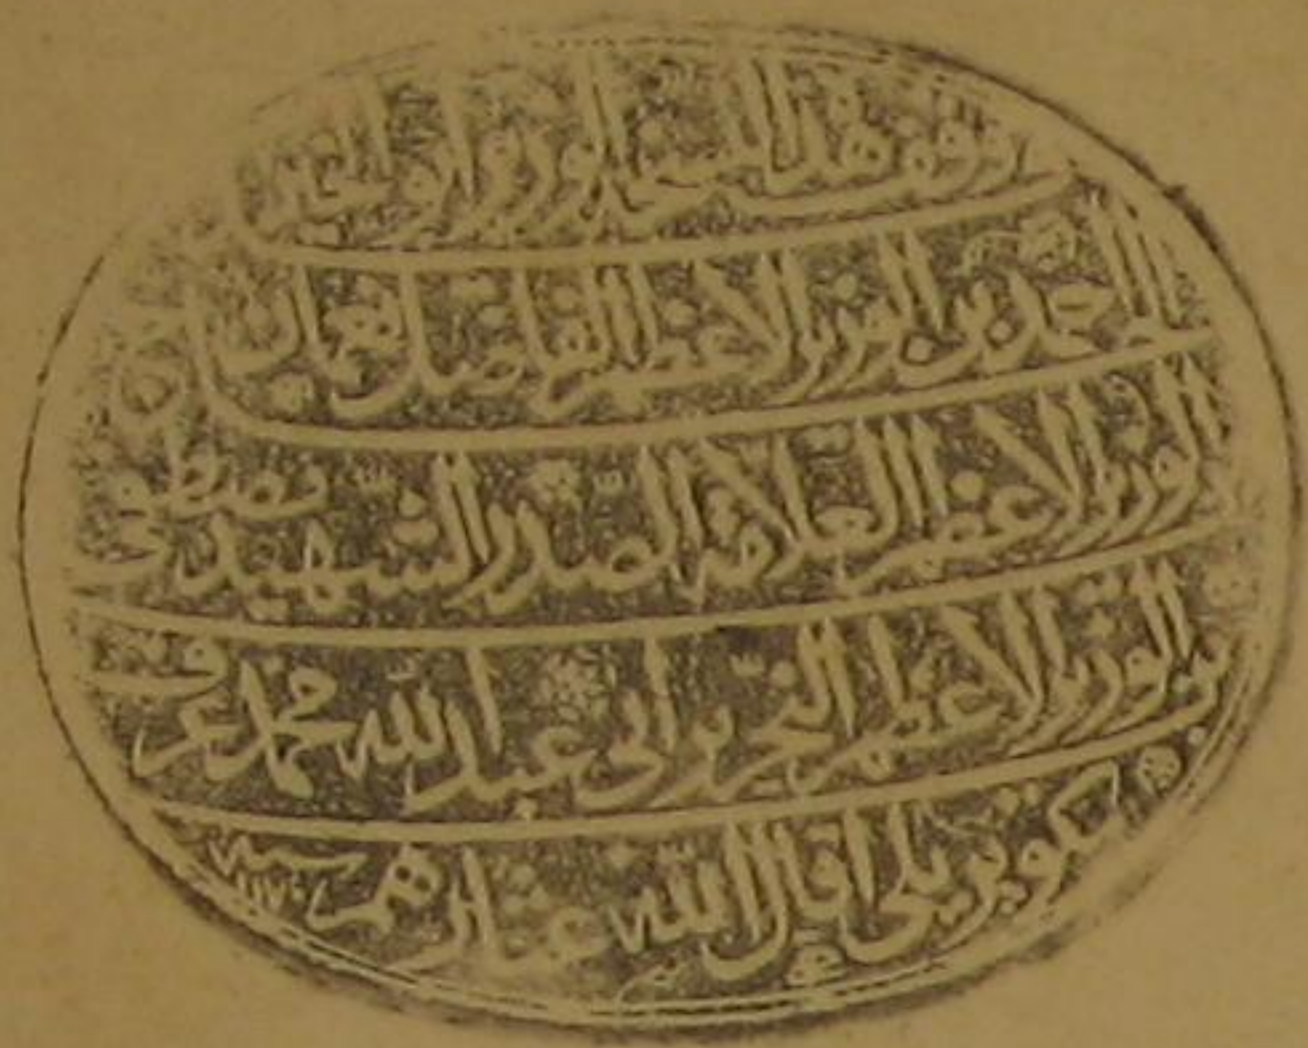 وقف هذا النسخة الوزير ابو الخير
الحاج احمد بن الوزير الاعظم الفاضل نعمان بن
الوزير الاعظم العلامة الصدر الشهيد مصطفى
بن الوزير الاعظم النحرير ابى عبد الله محمد عرف
بكوبريلى اقال الله عثارهم سنه